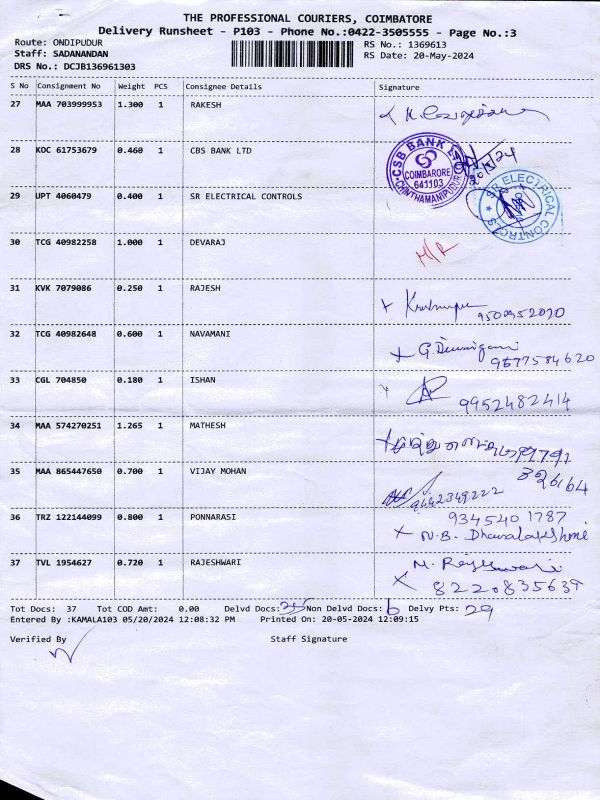 THE PROFESSIONAL COURIERS, COIMBATORE
Delivery Runsheet - P103 - Phone No.:0422-3505555 - Page No.:3
Route: ONDIPUDUR RS No.: 1369613
Staff: SADANANDAN RS Date: 20-May-2024
DRS No.: DCJB136961303
S No Consignment No Weight PCS Consignee Details Signature
27 MAA 703999953 1.300 1 RAKESH
28 KOC 61753679 0.460 1 CBS BANK LTD
CSB BANK LTD
COIMBARORE
641103
CHINTHAMANIPUDUR
29 UPT 4060479 0.400 1 SR ELECTRICAL CONTROLS
SR ELECTRICAL CONTROLS
30 TCG 40982258 1.000 1 DEVARAJ
31 KVK 7079086 0.250 1 RAJESH
32 TCG 40982648 0.600 1 NAVAMANI
9677584620
33 CGL 704850 0.180 1 ISHAN 9952482414
34 MAA 574270251 1.265 1 MATHESH
326164
35 MAA 865447650 0.700 1 VIJAY MOHAN 9442349222
36 TRZ 122144099 0.800 1 PONNARASI 9345401787
N.B. Dhanalakshmi
37 TVL 1954627 0.720 1 RAJESHWARI
8220835639
Tot Docs: 37 Tot COD Amt: 0.00 Delvd Docs: Non Delvd Docs: 6 Delvy Pts: 29
Entered By :KAMALA103 05/20/2024 12:08:32 PM Printed On: 20-05-2024 12:09:15
Verified By Staff Signature